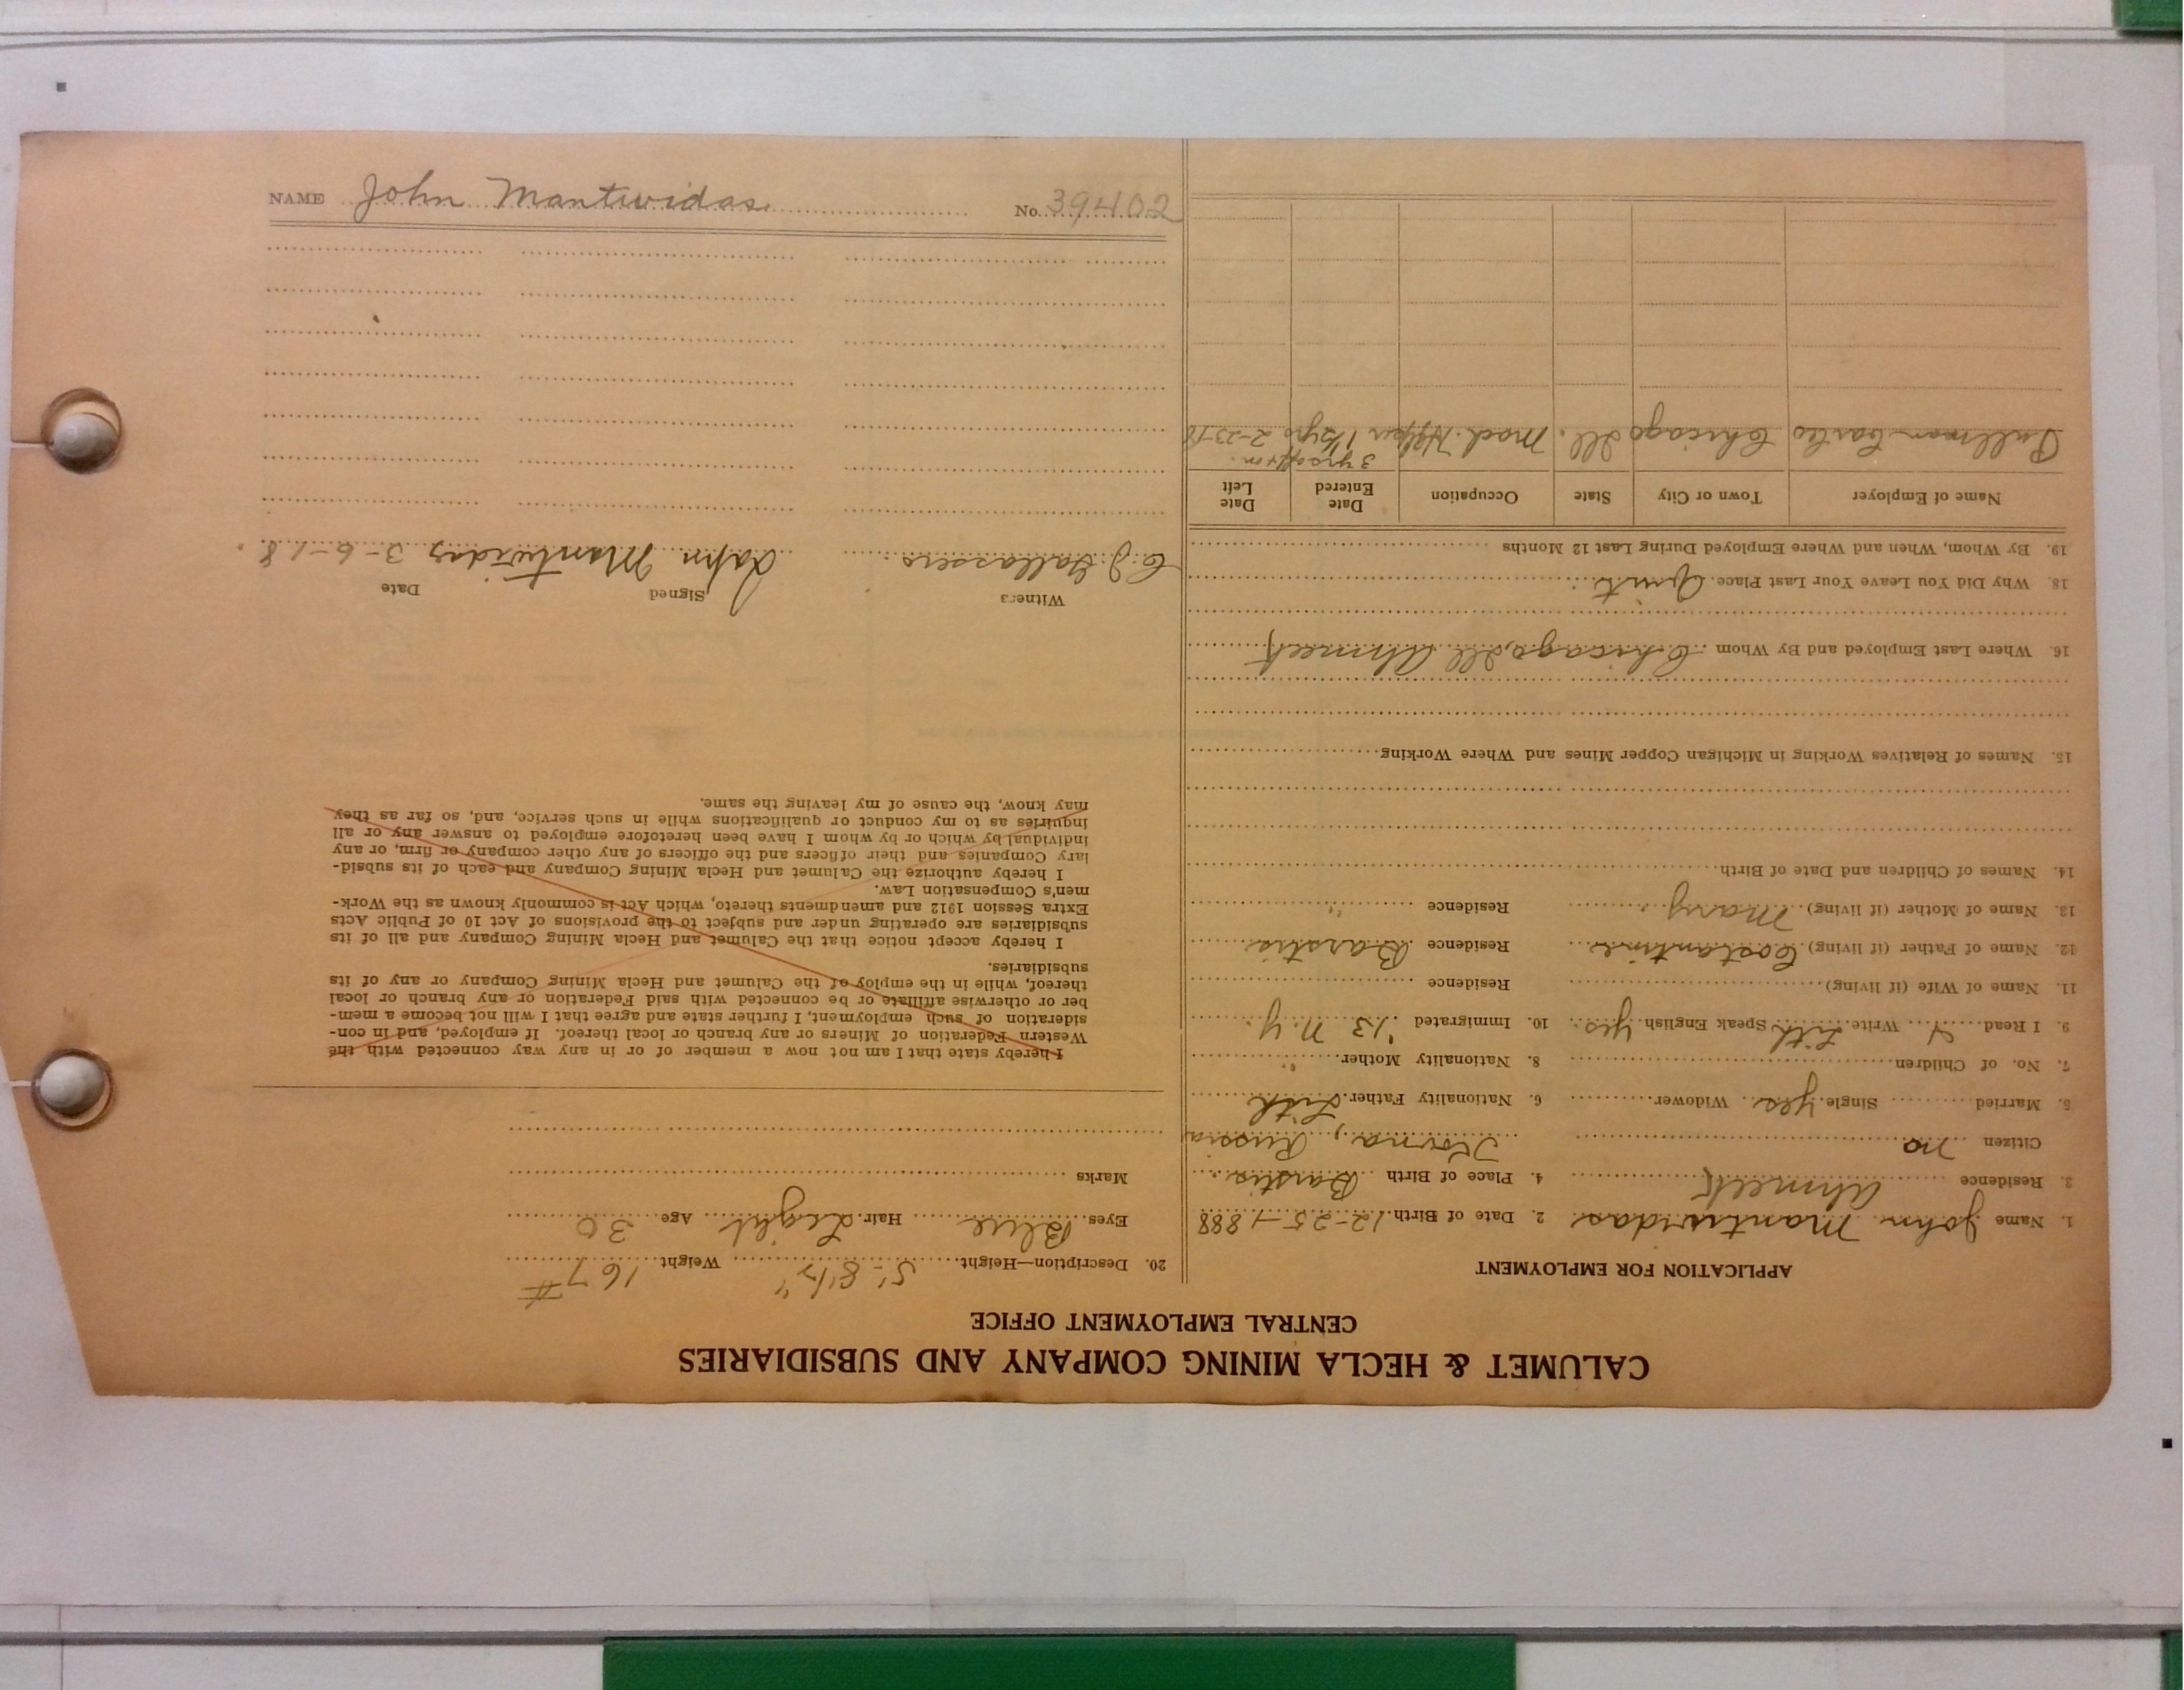 NAME John Mantwidas No. 39402
CALUMET & HECLA MINING COMPANY AND SUBSIDIARIES
CENTRAL EMPLOYMENT OFFICE
APPLICATION FOR EMPLOYMENT
1. Name John Mantwidas 2. Date of Birth 12-25-1888
3. Residence Ahmeek 4. Place of Birth Barstis
Citizen no Kovna, Russia
5. Married Single yes Widower 6. Nationality Father Lith
7. No. of Children 8. Nationality Mother "
9. I Read Write Lith Speak English yes 10. Immigrated '13 N.Y.
11. Name of Wife (if living) Residence
12. Name of Father (if living) Costantine Residence Barstis
13. Name of Mother (if living) Mary Residence "
14. Names of Children and Date of Birth
15. Names of Relatives Working in Michigan Copper Mines and Where Working
16. Where Last Employed and By Whom Chicago, Ill Ahmeek
18. Why Did You Leave Your Last Place Quit
19. By Whom, When and Where Employed During Last 12 Months
Name of Employer Town or City State Occupation Date Entered Date Left
3 yrs
Pullman Chicago Ill. Mach. Helper 1½ yrs 2-23-18
20. Description—Height 5'-8½" Weight 167#
Eyes Blue Hair Light Age 30
Marks
I hereby state that I am not now a member of or in any way connected with the
Western Federation of Miners or any branch or local thereof. If employed, and in con-
sideration of such employment, I further state and agree that I will not become a mem-
ber or otherwise affiliate or be connected with said Federation or any branch or local
thereof, while in the employ of the Calumet and Hecla Mining Company or any of its
subsidiaries.
I hereby accept notice that the Calumet and Hecla Mining Company and all of its
subsidiaries are operating under and subject to the provisions of Act 10 of Public Acts
Extra Session 1912 and amendments thereto, which Act is commonly known as the Work-
men's Compensation Law.
I hereby authorize the Calumet and Hecla Mining Company and each of its subsid-
iary Companies and their officers and the officers of any other company or firm, or any
individual by which or by whom I have been heretofore employed to answer any or all
inquiries as to my conduct or qualifications while in such service, and, so far as they
may know, the cause of my leaving the same.
Witness Signed Date
C. J. John Mantwidas 3-6-18